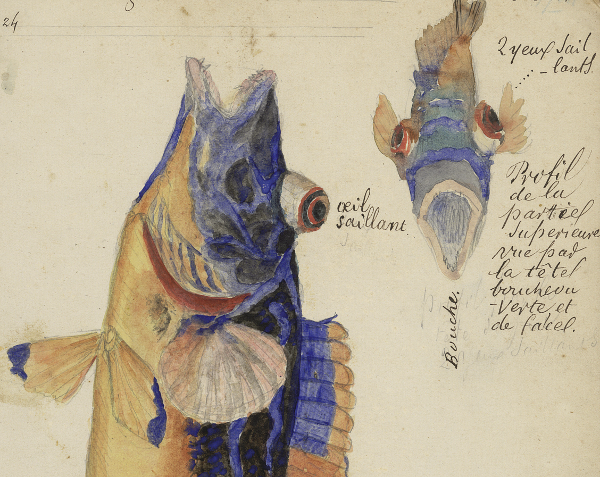 24
2 yeux sail
-lants.
œil
saillant
Profil
de la
partiel
superieure
vue par
la têtel
boucheou
-verte et
de facel.
Bouche.